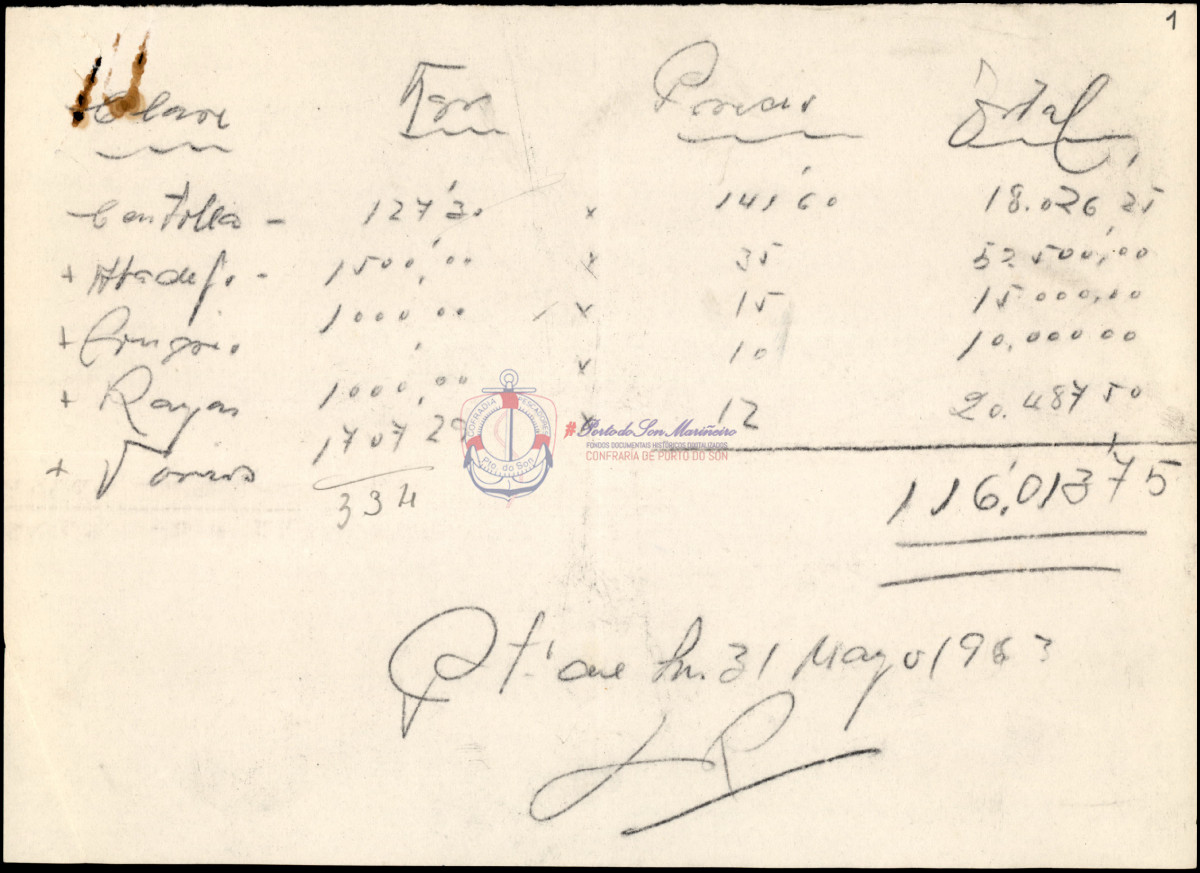 1
Clase Kgs Precio Total
Centollo - 127'30 x 141'60 18.026,25
+ Abadejo - 1500,00 x 35 52.500,00
+ Congrio 1000,00 x 15 15000,00
+ Rayas 1000,00 x 10 10.000,00
+ Varios 1707 29 x 12 20.487 50
334 116,013'75
COFRADIA PESCADORES
Pto. do Son
#Porto do Son Mariñeiro
FONDOS DOCUMENTAIS HISTÓRICOS DIGITALIZADOS
CONFRARÍA DE PORTO DO SON
Pt. del Son 31 Mayo 1963